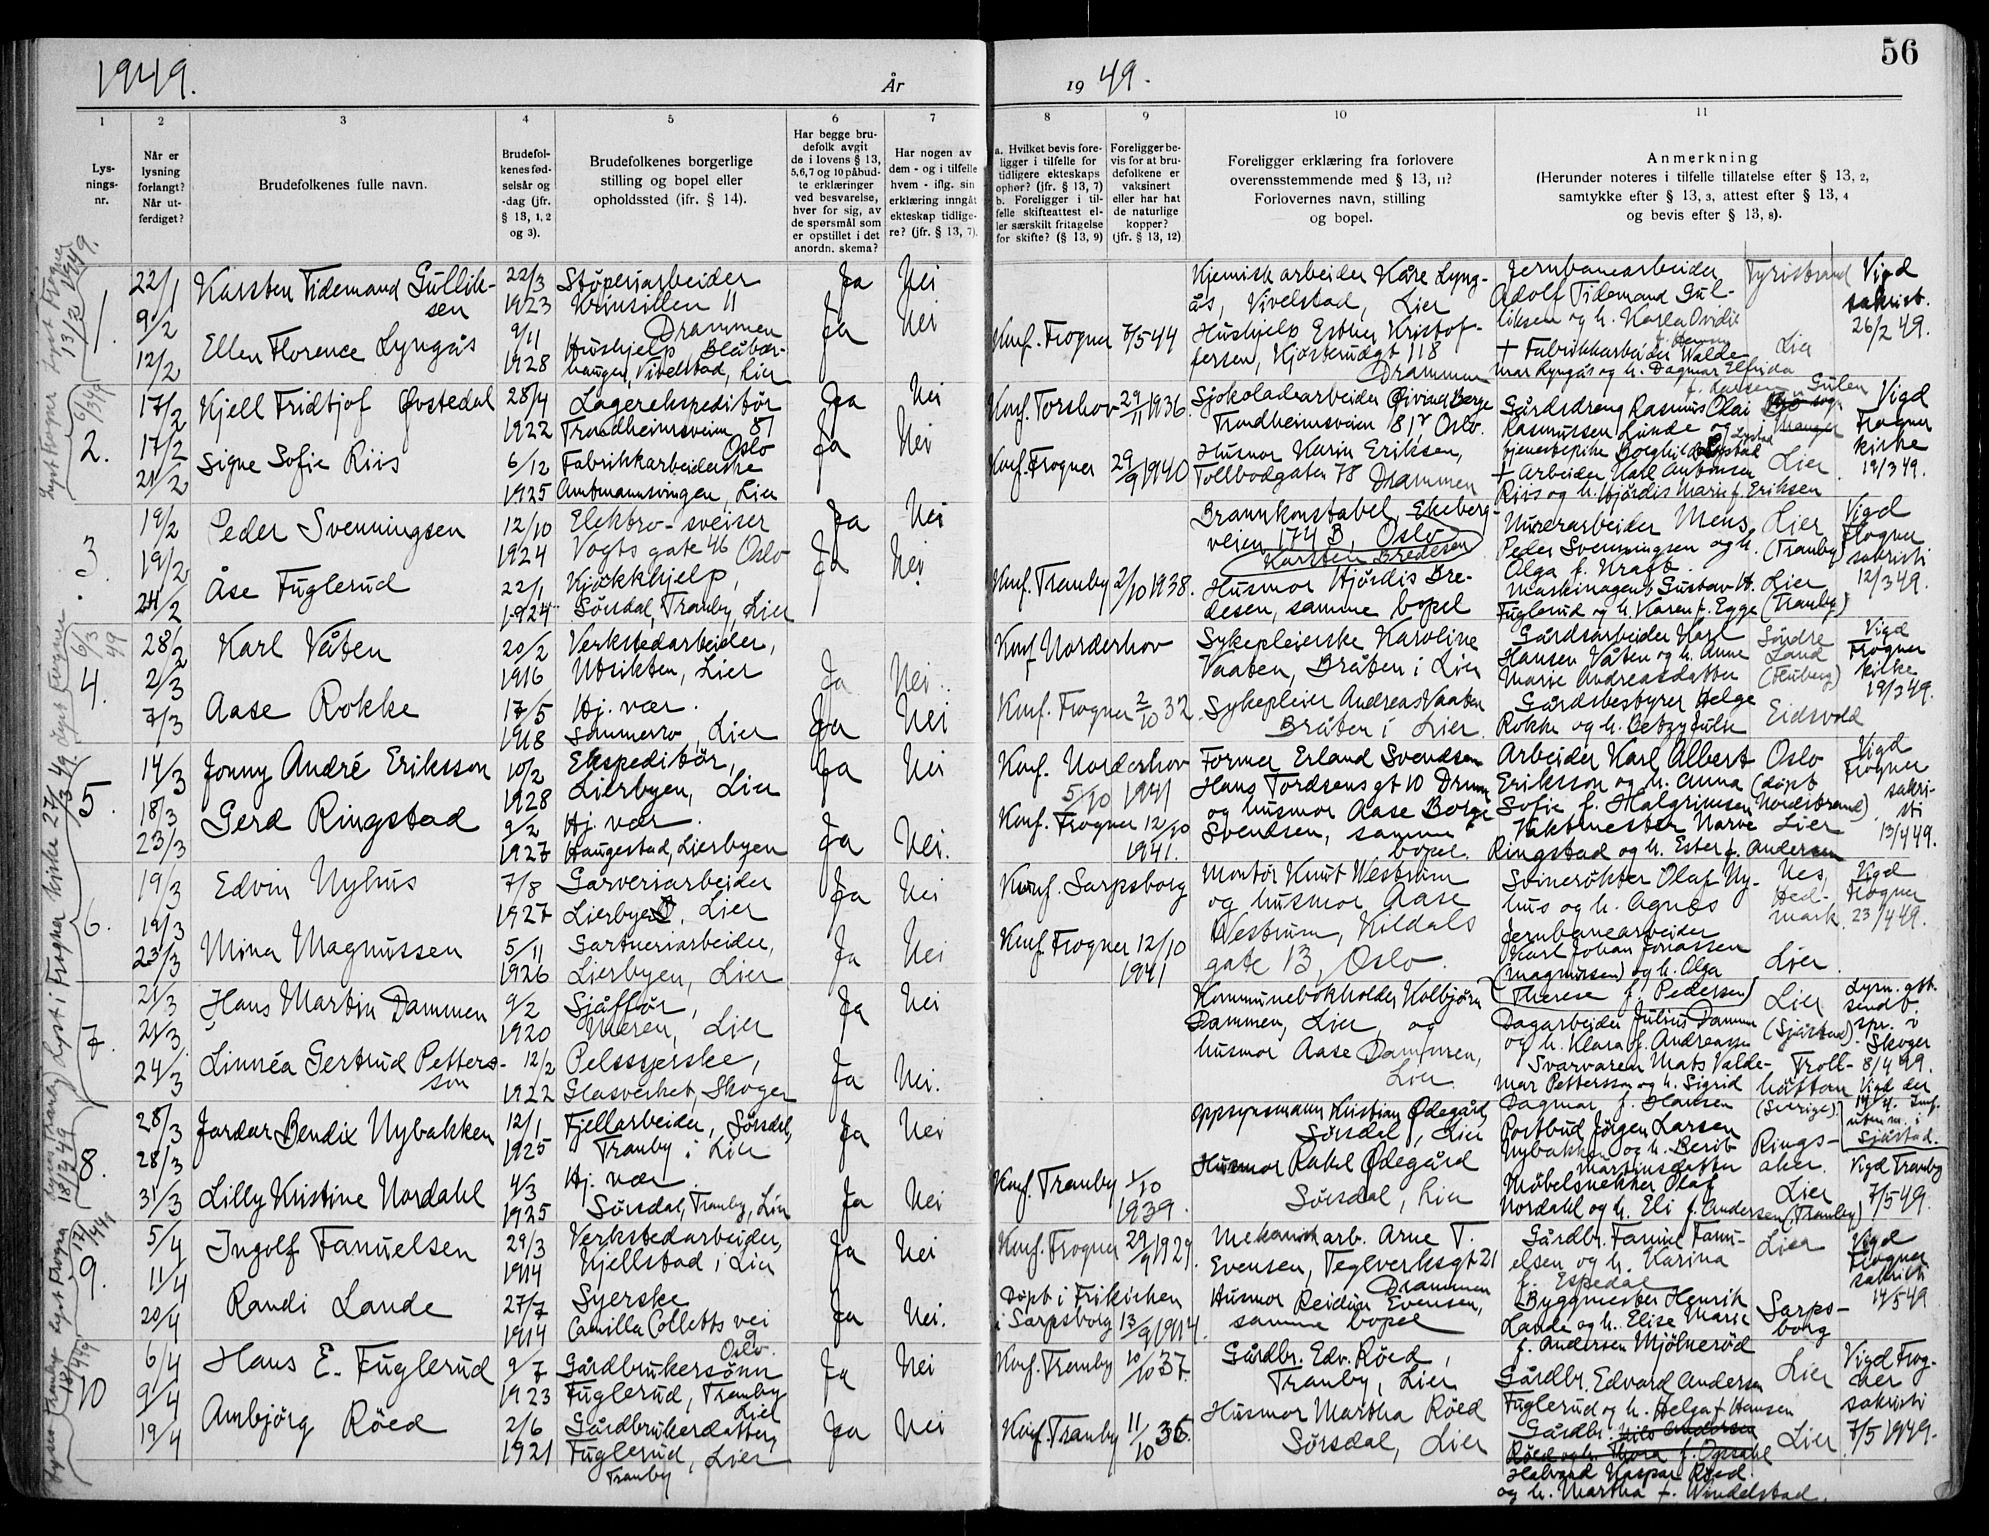 1949.
År
1949.
56
1
2
3
4
5
6
7
8
9
10
11
Lys-
nings-
nr.
Når er
lysning
forlangt?
Når ut-
ferdiget?
Brudefolkenes fulle navn.
Brudefol-
kenes fød-
selsår og
-dag (jfr.
§ 13, 1, 2
og 3).
Brudefolkenes borgerlige
stilling og bopel eller
opholdssted (jfr. § 14).
Har begge bru-
defolk avgit
de i lovens § 13,
5, 6, 7 og 10 påbud-
te erklæringer
ved besvarelse,
hver for sig, av
de spørsmål som
er opstillet i det
anordn. skema?
Har nogen av
dem - og i tilfelle
hvem - iflg. sin
erklæring inngått
ekteskap tidlige-
re? (jfr. § 13, 7).
a. Hvilket bevis fore-
ligger i tilfelle for
tidligere ekteskaps
ophør? (jfr. § 13, 7)
b. Foreligger i til-
felle skifteattest el-
ler særskilt fritagelse
for skifte? (§ 13, 9)
Foreligger be-
vis for at bru-
defolkene er
vaksinert
eller har hat
de naturlige
kopper?
(jfr. § 13, 12)
Foreligger erklæring fra forlovere
overensstemmende med § 13, 11?
Forlovernes navn, stilling
og bopel.
Anmerkning
(Herunder noteres i tilfelle tillatelse efter § 13, 2,
samtykke efter § 13, 3, attest efter § 13, 4
og bevis efter § 13, 8).
Lyst Frogner
13/2 1949.
1.
22/1
9/2
12/2
Karsten Tidemand Gullik-
sen
Ellen Florence Lyngås
22/3
1923
9/11
1928
Støperiarbeider
Drammen
Hushjelp, Blåbær-
haugen, Vivelstad, Lier
Ja
Ja
Nei
Nei
Konf. Frogner 7/5 44
Kjemisk arbeider Kåre Lyng-
ås, Vivelstad, Lier
Hushjelp Esther Kristof-
fersen, Kjøsterudgt 118
Drammen
Jernbanearbeider
Adolf Tidemand Gul-
liksen og h. Karla Ovidie
+ Fabrikkarbeider Walde-
mar Lyngås og h. Dagmar Elfrida
f. Larsen
Tyristrand
Lier
Vigd
sakrist.
26/2 49.
Lyst Frogner 6/3 49
2.
17/2
17/2
21/2
Kjell Fridtjof Øvstedal
Signe Sofie Riis
28/4
1922
6/12
1925
Lagerekspeditør
Trondheimsveien 81
Oslo
Fabrikkarbeiderske
Amtmannsvingen, Lier
Ja
Ja
Nei
Nei
Konf. Torshov 29/11 1936.
Konf. Frogner 29/9 1940
Sjokoladearbeider Øivind Berge
Trondheimsveien 81 Oslo.
Husmor Karin Eriksen,
Tollbodgaten 78 Drammen
Gårdsdreng Rasmus Olai
Rasmussen Lunde og
tjenestepike Borghild
+ Arbeider Karl Antonsen
Riis og h. Hjørdis Marie f. Eriksen
Gulen
sogn
Lier
Vigd
Frogner
kirke
19/3 49.
3.
19/2
19/2
24/2
Peder Svenningsen
Åse Fuglerud
12/10
1924
22/1
1924
Elektro-sveiser
Vogts gate 46 Oslo
Kjøkkhjelp,
Sørsdal, Tranby, Lier
Ja
Ja
Nei
Nei
Konf. Tranby 2/10 1938.
Brannkonstabel, Ekeberg-
veien 174 B, Oslo
Karsten Bredesen
Husmor Hjørdis Bre-
desen, samme bopel
Murerarbeider Mens
Peder Svenningsen og h.
Olga f. Kraft
Maskinagent Gustav H.
Fuglerud og h. Karen f. Egge
Lier
(Tranby)
Lier
(Tranby)
Vigd
Frogner
sakristi
12/3 49.
6/3 49
4.
28/2
2/3
7/3
Karl Våten
Aase Rokke
20/2
1916
17/5
1918
Verkstedarbeider,
Utsikten, Lier
Hj. vær.
Sommerro, Lier
Ja
Ja
Nei.
Nei
Konf Norderhov
Konf. Frogner 2/10 32
Sykepleierske Karoline
Vaaten, Bråten i Lier
Sykepleier Andreas Vaaten
Bråten i Lier
Gårdsarbeider Karl
Hansen Våten og h. Anne
Marie Andreasdatter
Gårdsbestyrer Helge
Rokke og h. Betzy
Søndre
Land
(Fluberg)
Eidsvold
Vigd
Frogner
kirke
19/3 49.
5.
14/3
18/3
23/3
Jonny André Eriksson
Gerd Ringstad
10/2
1928
9/2
1927
Ekspeditør,
Lierbyen, Lier
Hj. vær.
Haugestad, Lierbyen
Ja
Ja
Nei
Nei.
Konf. Norderhov
5/10 1941
Konf. Frogner 12/10
1941.
Former Erland Svendsen
Hans Tordsens gt 10 Drmn
og husmor Aase Borge
Svendsen, samme
bopel.
Arbeider Karl Albert
Eriksson og h. Anna
Sofie f. Halgrimsen
Vaktmester Narve
Ringstad og h. Ester f. Andersen
Oslo
(døpt
Nordstrand)
Lier
Vigd
Frogner
sakri-
sti
13/4 49.
6.
19/3
19/3
23/3
Edvin Nyhus
Mina Magnussen
7/8
1927
5/11
1926
Garveriarbeider
Lierbyen, Lier
Gartneriarbeider,
Lierbyen, Lier
Ja
Ja
Nei
Nei
Konf. Sarpsborg
Konf. Frogner 12/10
1941
Montør Knut Westrum
og husmor Aase
Westrum, Kildals
gate 13, Oslo.
Svinerøkter Olaf Ny-
hus og h. Agnes
Jernbanearbeider
Karl Johan Jonassen
(Magnussen) og h. Olga
Therese f. Pedersen)
Nes,
Hed-
mark.
Lier.
Vigd
Frogner
23/4 49.
7.
21/3
21/3
24/3
Hans Martin Dammen
Linnéa Gertrud Petters-
son
9/2
1920
12/2
1922
Sjåffør,
Meren, Lier
Pelssyerske,
Glasverket, Skoger
Ja
Ja
Nei
Nei.
Kommunebokholder Kolbjørn
Dammen, Lier, og
husmor Aase Dammen,
Lier.
Dagarbeider Julius Dammen
og h. Klara f. Andreassen
Svarvaren Mats Valde-
mar Pettersson og h. Sigrid
Dagmar f. Hansen
Lier
(Sjåstad)
Troll-
hättan
(Sverige).
Lysn. att.
sendt
spr. i
Skoger
8/4 49.
Vigd der
Sjåstad.
8.
28/3
28/3
31/3
Jardar Bendix Nybakken
Lilly Kristine Nordahl
12/1
1925
4/3
1925
Fjellarbeider, Sørsdal,
Tranby i Lier
Hj. vær
Sørsdal, Tranby, Lier
Ja
Ja
Nei
Nei
Konf. Tranby 1/10
1939.
Oppsynsmann Kristian Ødegård,
Sørsdal, Lier
Husmor Rakel Ødegård
Sørsdal, Lier
Postbud Jørgen Larsen
Nybakken og h. Berit
Martinsdatter
Møbelsnekker Olaf
Nordahl og h. Eli f. Andersen
Rings-
aker.
Lier
(Tranby)
Vigd Tranby
7/5 49.
17/4 49
9.
5/4
11/4
20/4
Ingolf Fanuelsen
Randi Lande
29/3
1914
27/7
1914
Verkstedarbeider,
Kjellstad i Lier
Syerske
Camilla Colletts vei
9
Oslo.
Ja
Ja
Nei
Nei.
Konf. Frogner 29/9 1929.
Døpt i Frikirken
i Sarpsborg 13/9 1914.
Mekanisk arb. Arne T.
Evensen, Teglverksgt 21
Drammen
Husmor Reidun Evensen,
samme bopel
Gårdbr. Fanuel Fanu-
elsen og h. Karina
f. Espedal
Byggmester Henrik
Lande og h. Elise Marie
f. Andersen Mjølnerød
Lier
Sarps-
borg
Vigd
Frogner
sakristi
14/5 49
10
6/4
9/4
19/4
Hans E. Fuglerud
Ambjørg Røed
9/7
1923
2/6
1921
Gårdbrukersønn
Fuglerud, Tranby
Lier
Gårdbrukerdatter,
Fuglerud, Lier
Tranby
Ja
Ja
Nei
Nei
Konf. Tranby 10/10 37.
Konf. Tranby 11/10 36.
Gårdbr. Edv. Røed,
Tranby, Lier
Husmor Martha Røed
Sørsdal, Lier
Gårdbr. Edvard Andersen
Fuglerud og h. Helga f. Hansen
Gårdbr. Nils Andersen
Røed og h. Thora f. Opsahl
Halvard Kaspar Røed
og h. Martha f. Windelstad.
Lier
Lier
Vigd Frog-
ner
sakristi
7/5 1949.